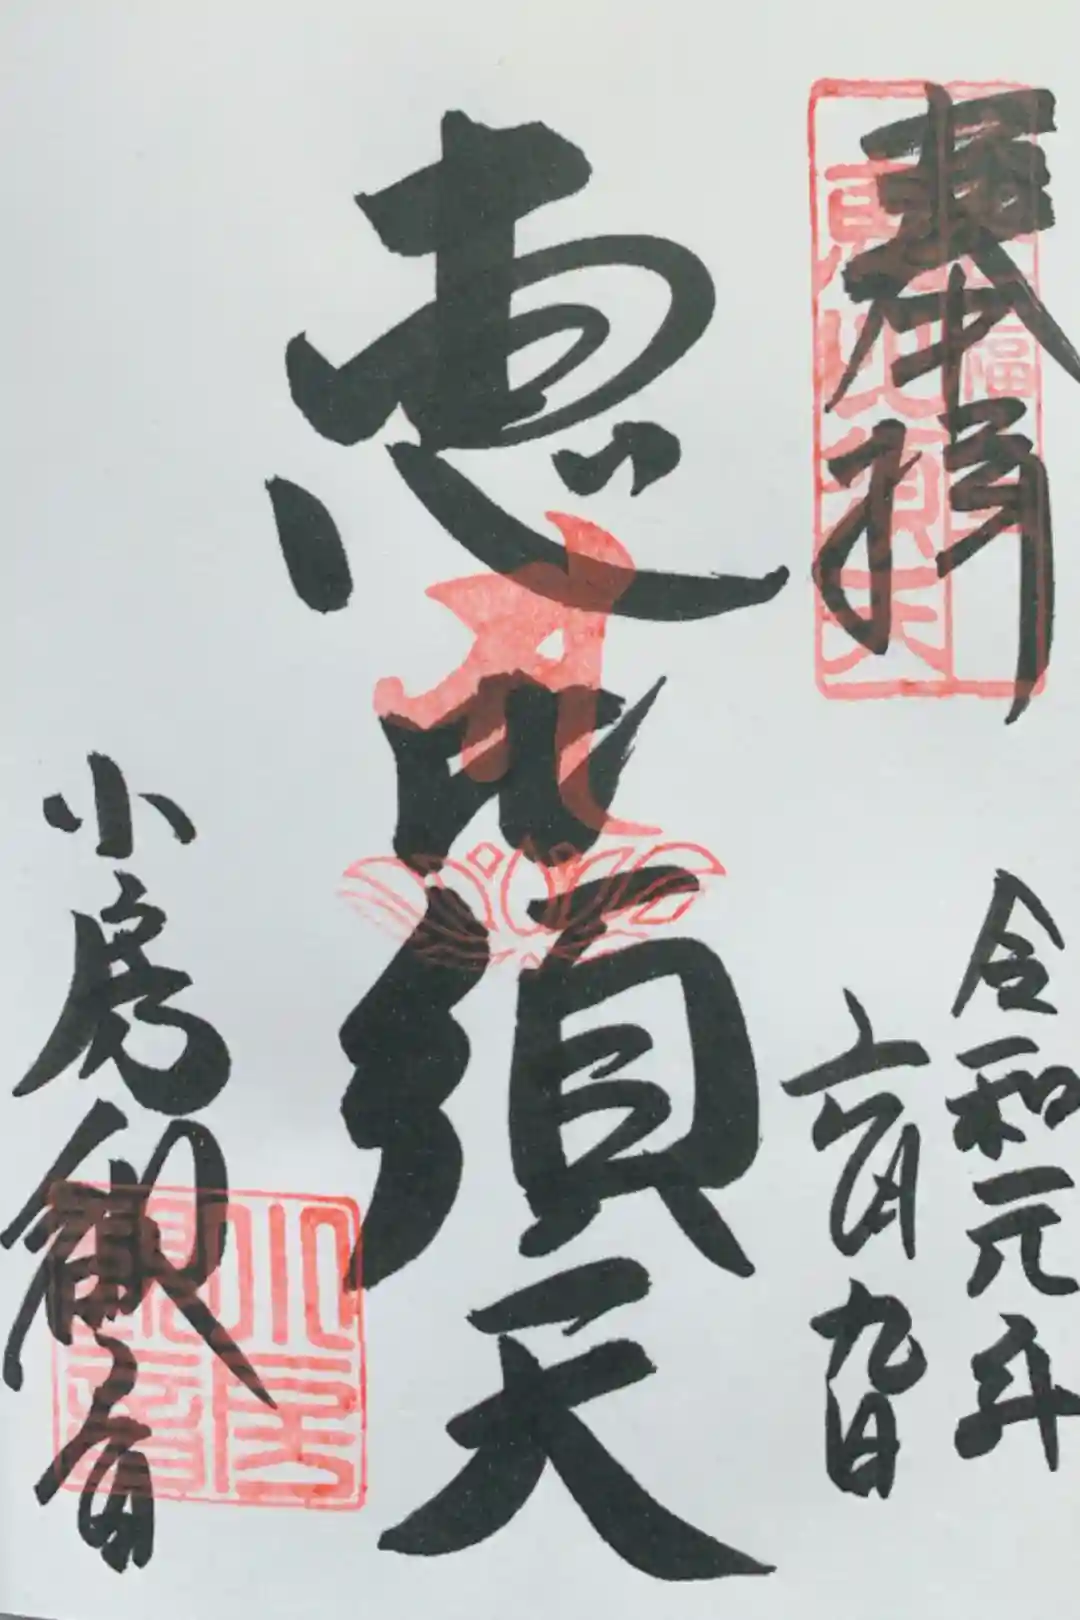 奉拝
令和元年
六月九日
恵比須天
小房観音
恵比須天
小房
観音